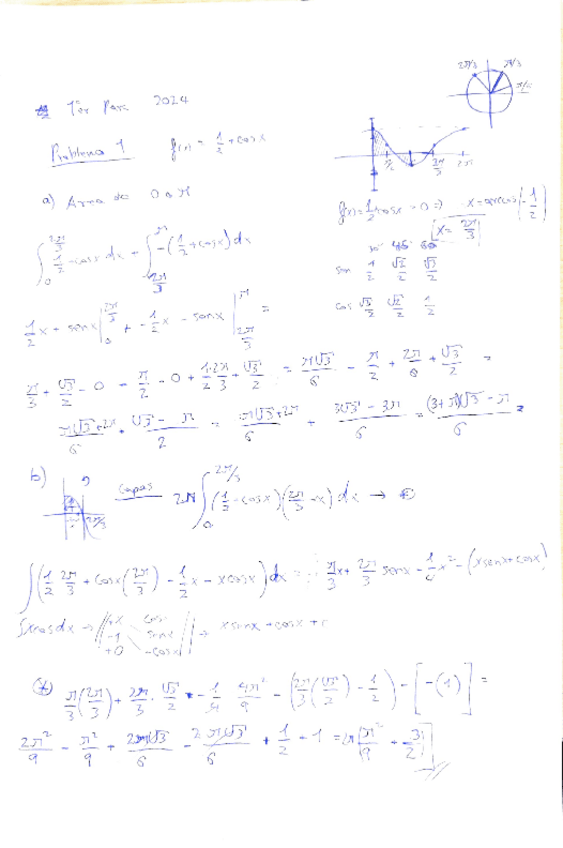 1er Parc 2024
2π/3 π/3
Problema 1 f(x) = 1/2 + cos x
π/2 2π/3 2π
a) Area de 0 a π
f(x) = 1/2 + cos x = 0 => x = arccos(-1/2)
x = 2π/3
30° 45° 60°
sen 1/2 √2/2 √3/2
cos √3/2 √2/2 1/2
∫ 0 2π/3 1/2 + cos x dx + ∫ 2π/3 π -(1/2 + cos x) dx
1/2 x + sen x | 0 2π/3 + -1/2 x - sen x | 2π/3 π =
π/3 + √3/2 - 0 - π/2 - 0 + 1/2 · 2π/3 + √3/2 = π√3/6 - π/2 + 2π/6 + √3/2 =
π√3 + 2π/6 + √3 - π/2 = π√3 + 2π/6 + 3√3 - 3π/6 = (3+π)√3 - π/6
b)
2π/3
capas 2π ∫ 0 2π/3 (1/2 + cos x)(2π/3 - x) dx →
∫ (1/2 2π/3 + cos x (2π/3) - 1/2 x - x cos x) dx = π/3 x + 2π/3 sen x - 1/4 x² - (x sen x + cos x)
∫ x cos dx → +x cos x -1 sen x +0 -cos x → x sen x + cos x + c
π/3 (2π/3) + 2π/3 · √3/2 - 1/4 4π²/9 - (2π/3 (√3/2) - 1/2) - [-(1)] =
2π²/9 - π²/9 + 2π√3/6 - 2π√3/6 + 1/2 + 1 = 2π[π²/9 + 3/2]